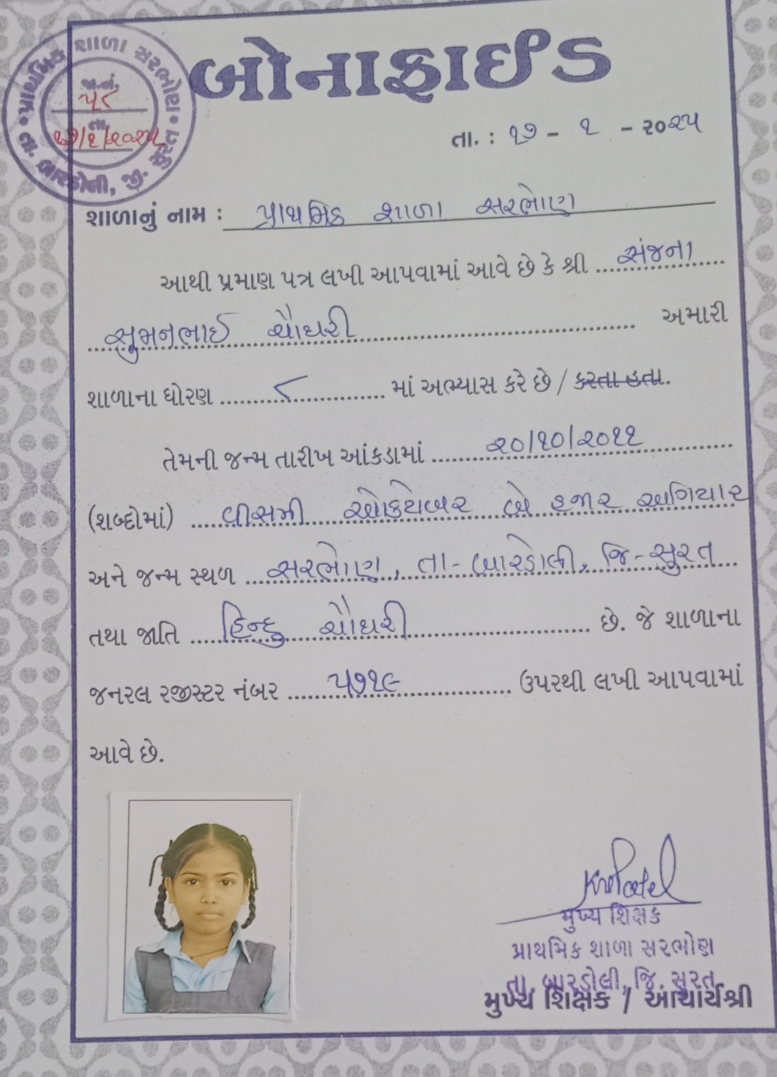 પ્રાથમિક શાળા સરભોણ
તા. બારડોલી, જી. સુરત
જા.નં.
૫૮
તા.
બોનાફાઈડ
તા. : ૧૭ - ૧ - ૨૦૨૫
શાળાનું નામ : પ્રાથમિક શાળા સરભોણ
આથી પ્રમાણ પત્ર લખી આપવામાં આવે છે કે શ્રી સંજના
સુમનભાઈ ચૌધરી અમારી
શાળાના ધોરણ ૮ માં અભ્યાસ કરે છે / કરતા હતા.
તેમની જન્મ તારીખ આંકડામાં ૨૦/૧૦/૨૦૧૧
(શબ્દોમાં) વીસમી ઓક્ટોબર બે હજાર અગિયાર
અને જન્મ સ્થળ સરભોણ, તા- બારડોલી, જિ- સુરત
તથા જાતિ હિન્દુ ચૌધરી છે. જે શાળાના
જનરલ રજીસ્ટર નંબર ૫૭૧૯ ઉપરથી લખી આપવામાં
આવે છે.
મુખ્ય શિક્ષક
પ્રાથમિક શાળા સરભોણ
તા. બારડોલી, જિ. સુરત
મુખ્ય શિક્ષક / આચાર્યશ્રી